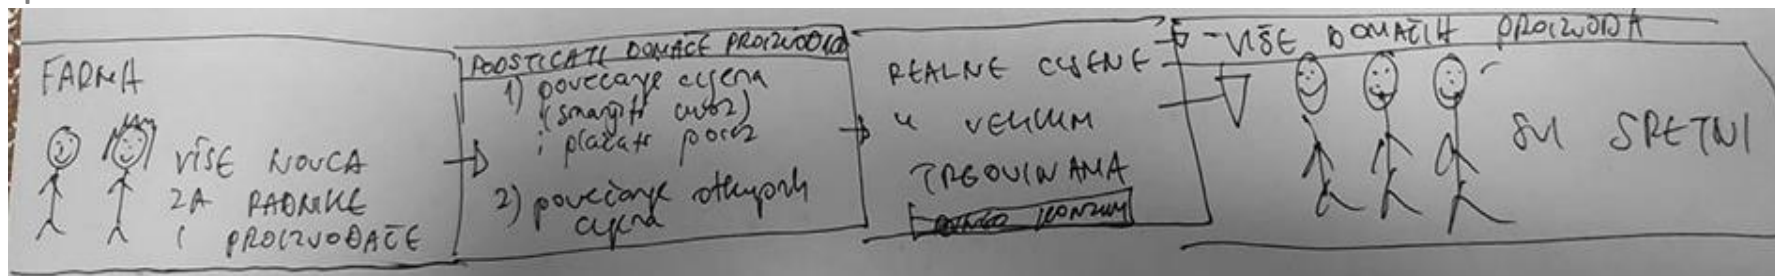 FARMA
VIŠE NOVCA
ZA RADNIKE
I PROIZVOĐAČE
POOSTICATI DOMAĆE PROIZVODE
1) povećanje cijena
(smanjiti uvoz)
i plaćati porez
2) povećanje otkupnih
cijena
REALNE CIJENE
U VELIKIM
TRGOVINAMA
KONZUM
- VIŠE DOMAĆIH PROIZVODA
SVI SRETNI